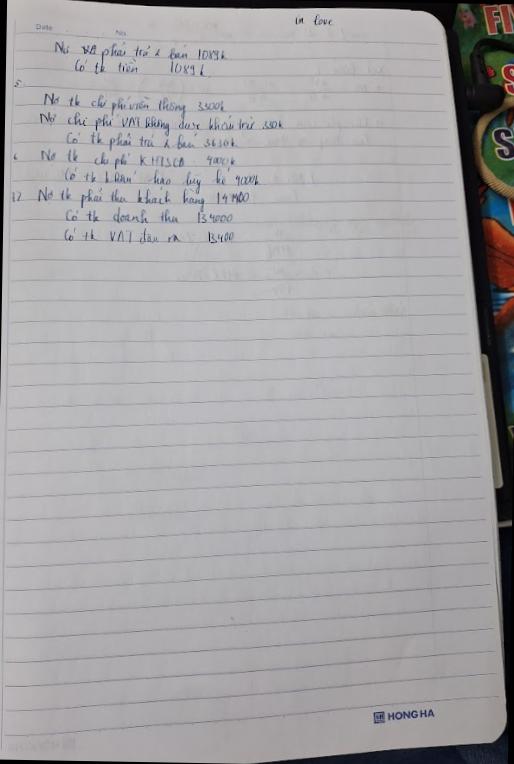 in love
Date No.
Nợ phải trả k bán 1089k
Có tk tiền 1089k
5
Nợ tk chi phí viễn thông 3300k
Nợ chi phí VAT không được khấu trừ 330k
Có tk phải trả k bán 3630k
6 Nợ tk chi phí KHTSCĐ 4000k
Có tk khấu hao lũy kế 4000k
Nợ tk phải thu khách hàng 147400
Có tk doanh thu 134000
Có tk VAT đầu ra 13400
HONG HA